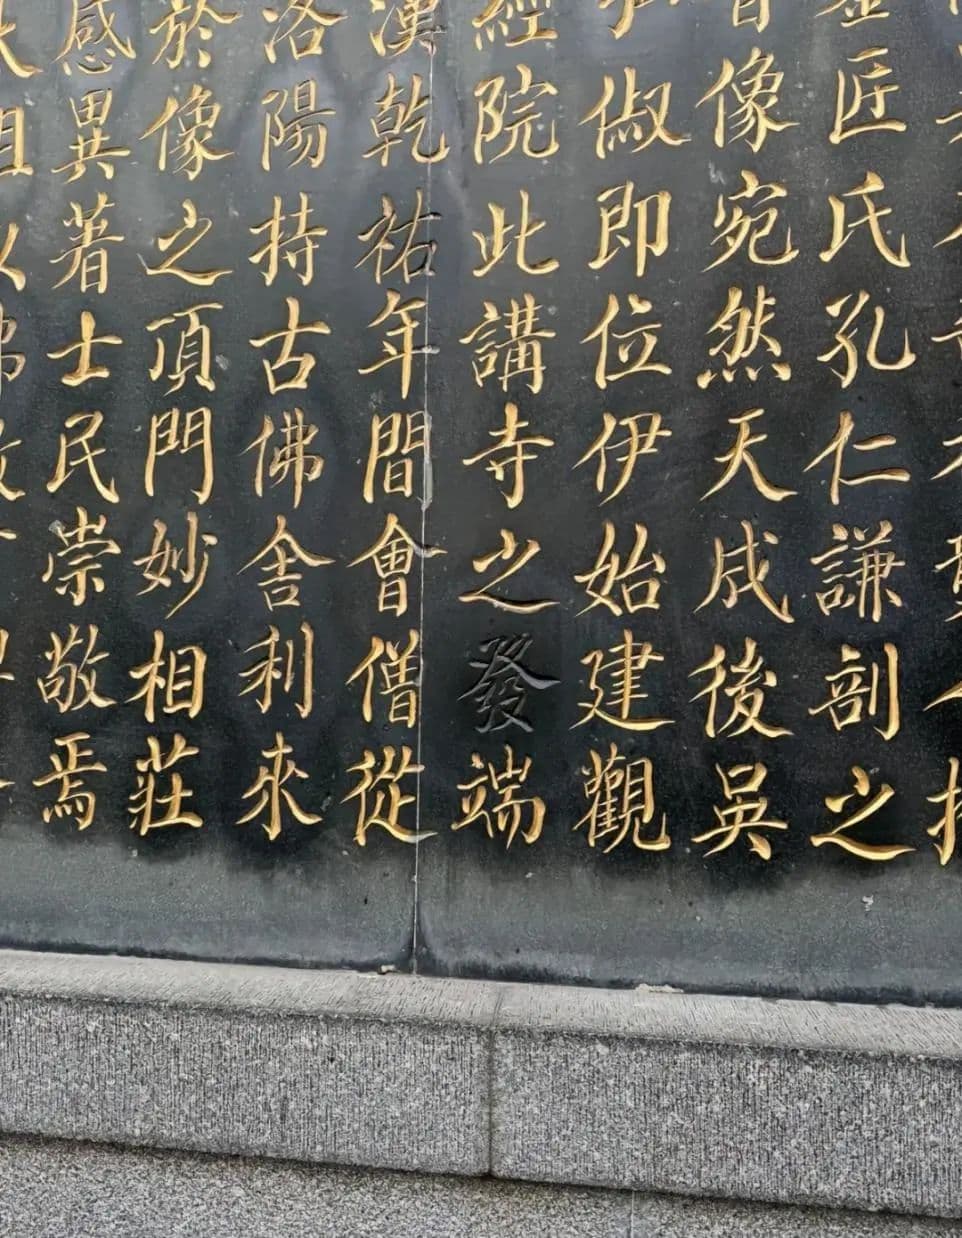 匠氏孔仁謙剖之
像宛然天成後吳
俶即位伊始建觀
經院此講寺之發端
漢乾祐年間會僧從
洛陽持古佛舍利來
於像之頂門妙相莊
感異著士民崇敬焉